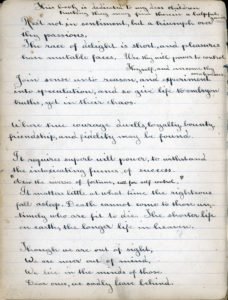 This book is dedicated to my dear children
trusting they may find therein a helpful
Rest not in contentment, but a triumph over
thy passions.
The race of delight is short, and pleasures
have mutable faces. Use thy will power to control
Thyself, and surround thy
Join sense unto reason, and experiment
into speculation, and so give life to embryon
truths, yet in their chaos.
Where true courage dwells, loyalty, bounty,
friendship, and fidelity may be found.
It requires superb will power, to withstand
the intoxicating fumes of success.
"Are the warder of fortune, not for self control."
It matters little at what time the righteous
fall asleep. Death cannot come to those un-
timely who are fit to die. The shorter life
on earth, the longer life in heaven.
Though we are out of sight,
We are never out of mind,
We live in the minds of those
Dear ones, we sadly leave behind.